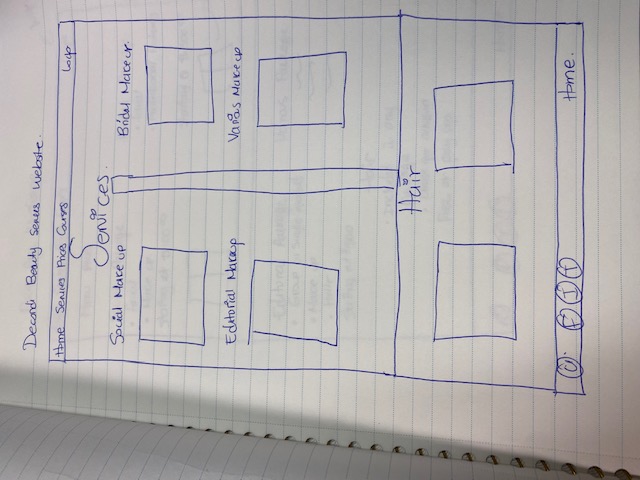 Beauty Website.
Home Services Prices Courses Logo
Services.
Social Make up Bridal Makeup.
Editorial Makeup Makeup
Hair
F I T Home.